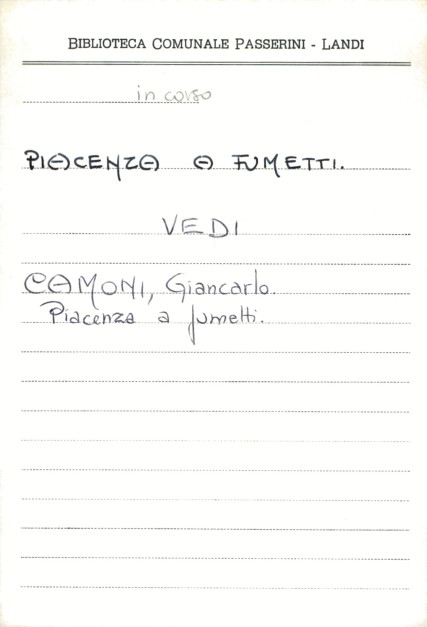 BIBLIOTECA COMUNALE PASSERINI - LANDI
in corso
PIACENZA A FUMETTI.
VEDI
CAMONI, Giancarlo.
Piacenza a fumetti.